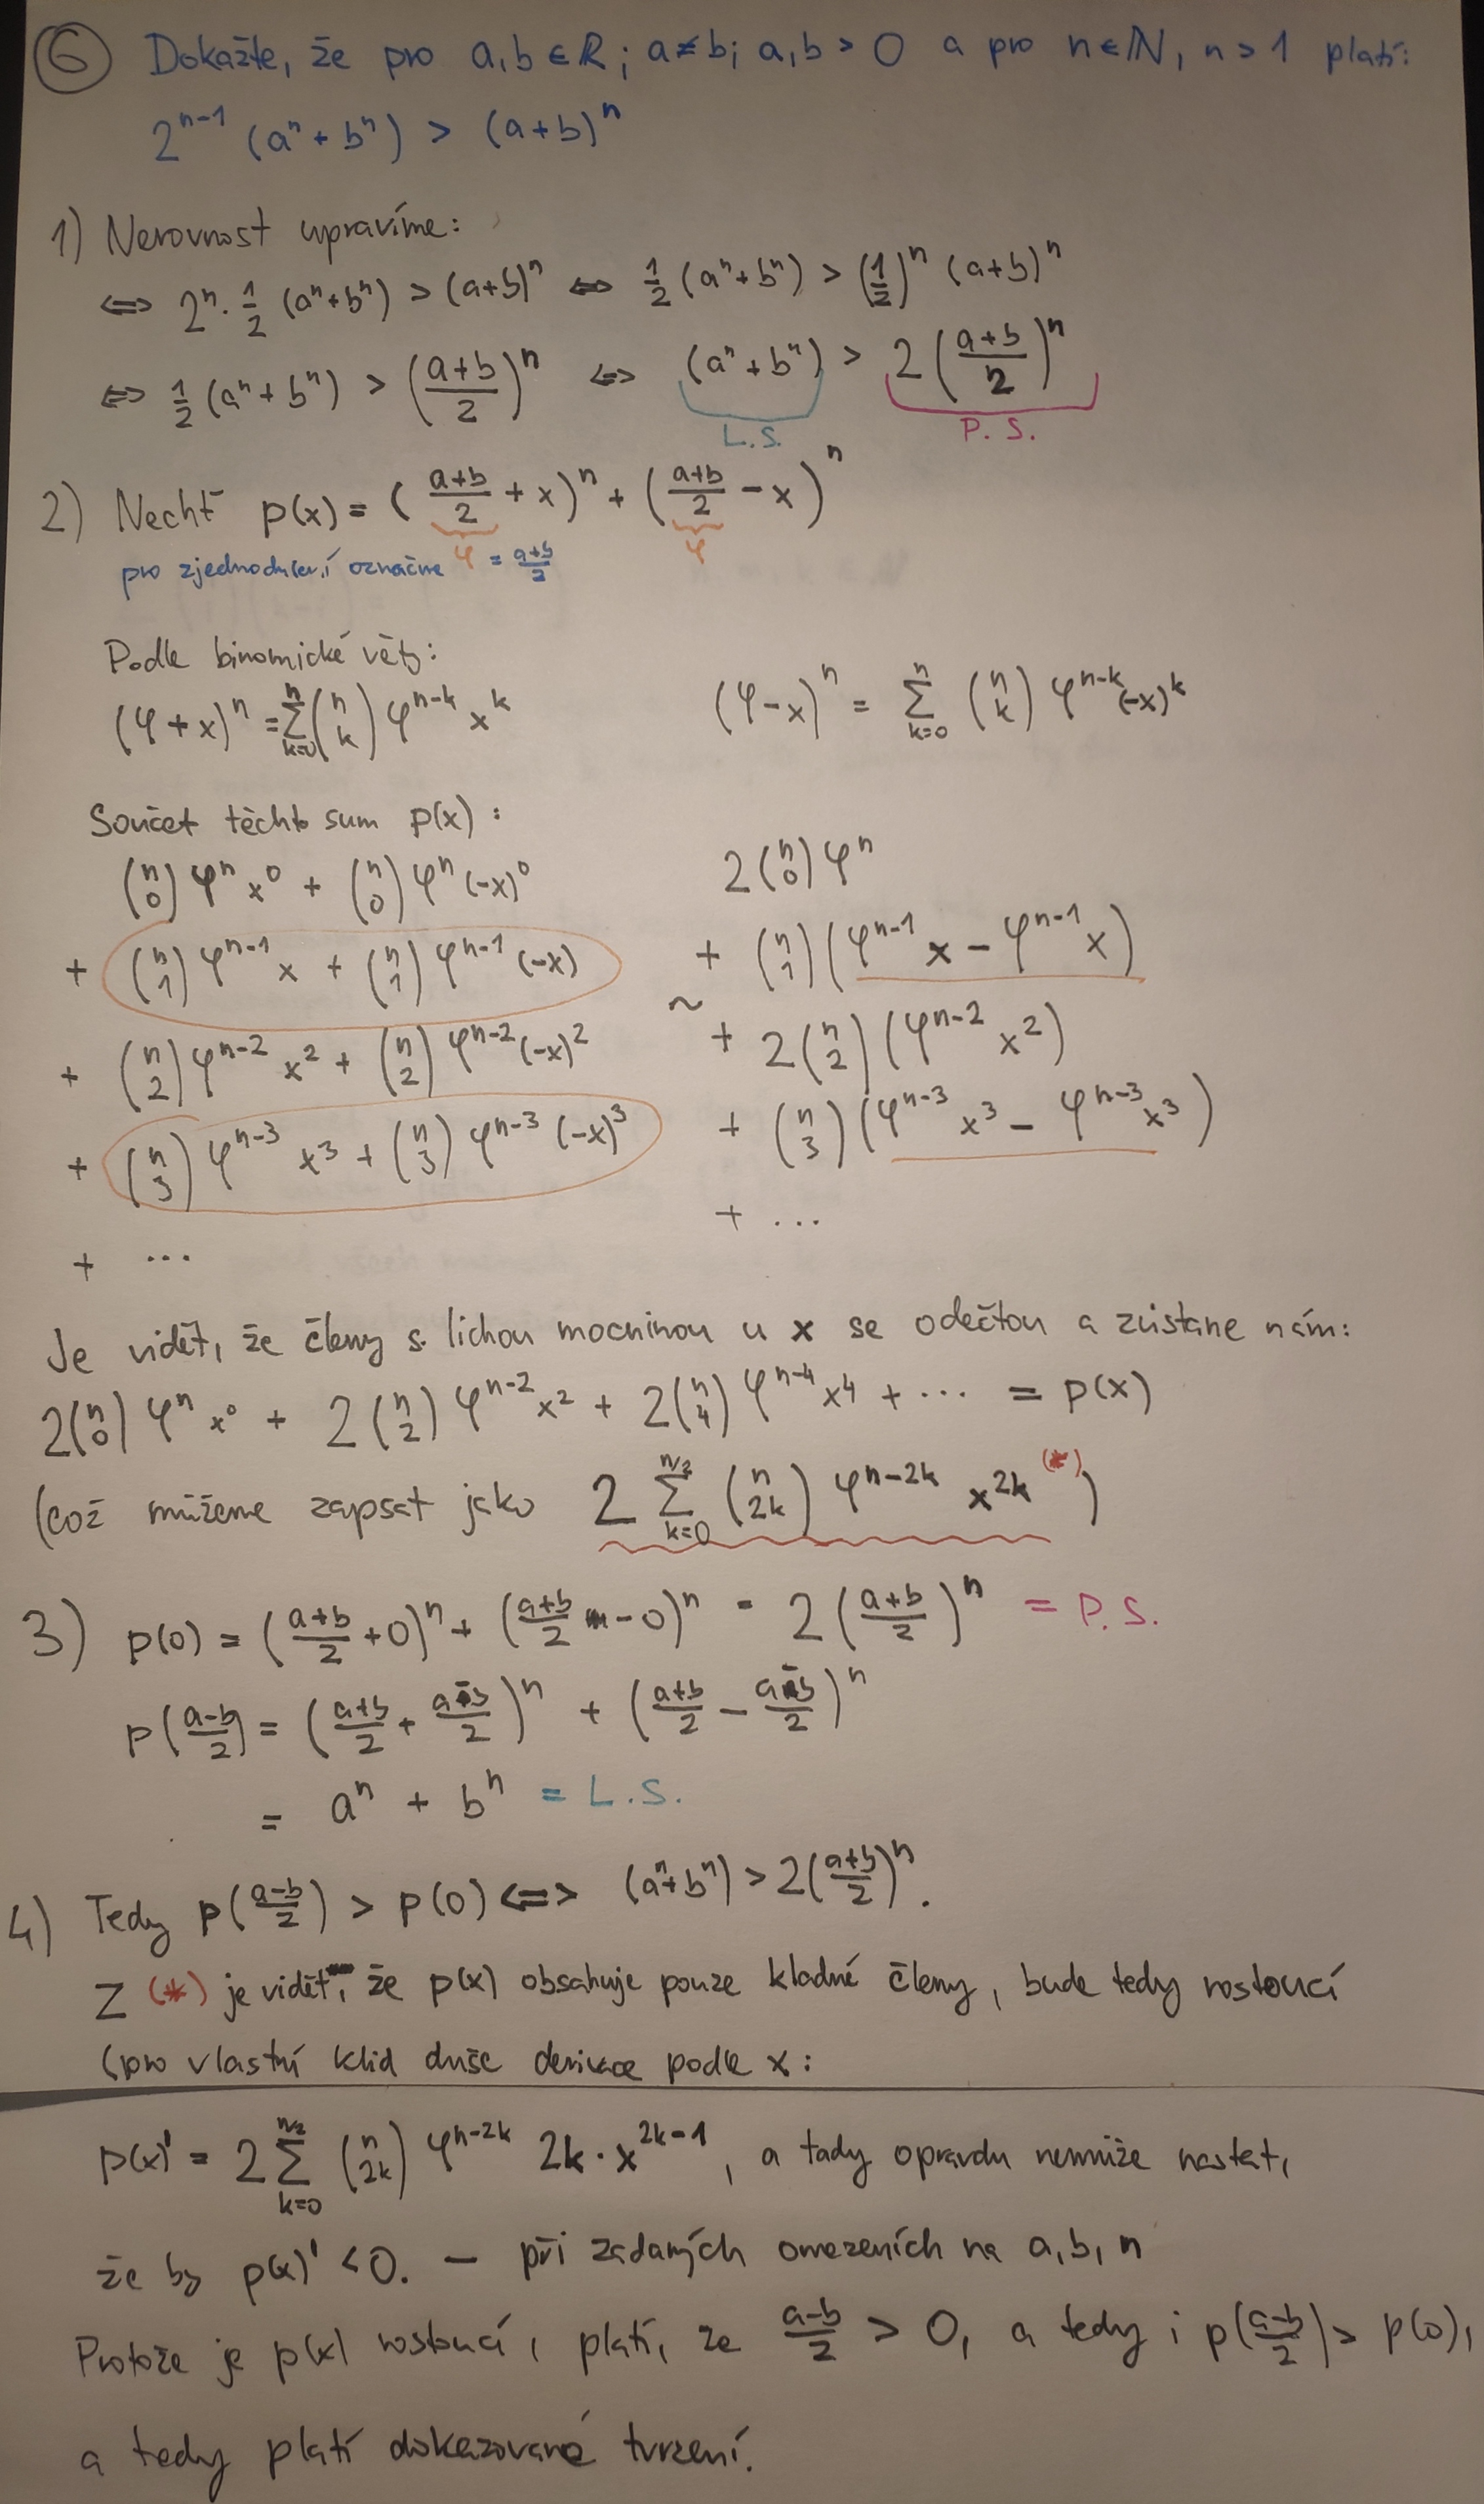 6 Dokažte, že pro a,b ∈ ℝ; a≠b; a,b > 0 a pro n∈ℕ, n>1 platí:
2^{n-1} (a^n + b^n) > (a+b)^n
1) Nerovnost upravíme:
⟺ 2^n · 1/2 (a^n+b^n) > (a+b)^n ⟺ 1/2 (a^n+b^n) > (1/2)^n (a+b)^n
⟺ 1/2 (a^n+b^n) > ((a+b)/2)^n ⟺ (a^n+b^n) > 2((a+b)/2)^n
L.S. P.S.
2) Nechť p(x) = ((a+b)/2 + x)^n + ((a+b)/2 - x)^n
pro zjednodušení označme φ = (a+b)/2 φ
Podle binomické věty:
(φ+x)^n = Σ_{k=0}^{n} (n k) φ^{n-k} x^k (φ-x)^n = Σ_{k=0}^{n} (n k) φ^{n-k} (-x)^k
Součet těchto sum p(x):
(n 0) φ^n x^0 + (n 0) φ^n (-x)^0 2 (n 0) φ^n
+ (n 1) φ^{n-1} x + (n 1) φ^{n-1} (-x) + (n 1) (φ^{n-1} x - φ^{n-1} x)
+ (n 2) φ^{n-2} x^2 + (n 2) φ^{n-2} (-x)^2 ~ + 2 (n 2) (φ^{n-2} x^2)
+ (n 3) φ^{n-3} x^3 + (n 3) φ^{n-3} (-x)^3 + (n 3) (φ^{n-3} x^3 - φ^{n-3} x^3)
+ ... + ...
Je vidět, že členy s lichou mocninou u x se odečtou a zůstane nám:
2 (n 0) φ^n x^0 + 2 (n 2) φ^{n-2} x^2 + 2 (n 4) φ^{n-4} x^4 + ... = p(x)
(což můžeme zapsat jako 2 Σ_{k=0}^{n/2} (n 2k) φ^{n-2k} x^{2k} (*))
3) p(0) = ((a+b)/2 + 0)^n + ((a+b)/2 - 0)^n = 2((a+b)/2)^n = P.S.
p((a-b)/2) = ((a+b)/2 + (a-b)/2)^n + ((a+b)/2 - (a-b)/2)^n
= a^n + b^n = L.S.
4) Tedy p((a-b)/2) > p(0) ⟺ (a^n+b^n) > 2((a+b)/2)^n.
Z (*) je vidět, že p(x) obsahuje pouze kladné členy, bude tedy rostoucí
(pro vlastní klid duše derivace podle x:
p(x)' = 2 Σ_{k=0}^{n/2} (n 2k) φ^{n-2k} 2k · x^{2k-1}, a tady opravdu nemůže nastat,
že by p(x)' < 0. – při zadaných omezeních na a,b,n
Protože je p(x) rostoucí, platí, že (a-b)/2 > 0, a tedy i p((a-b)/2) > p(0),
a tedy platí dokazované tvrzení.